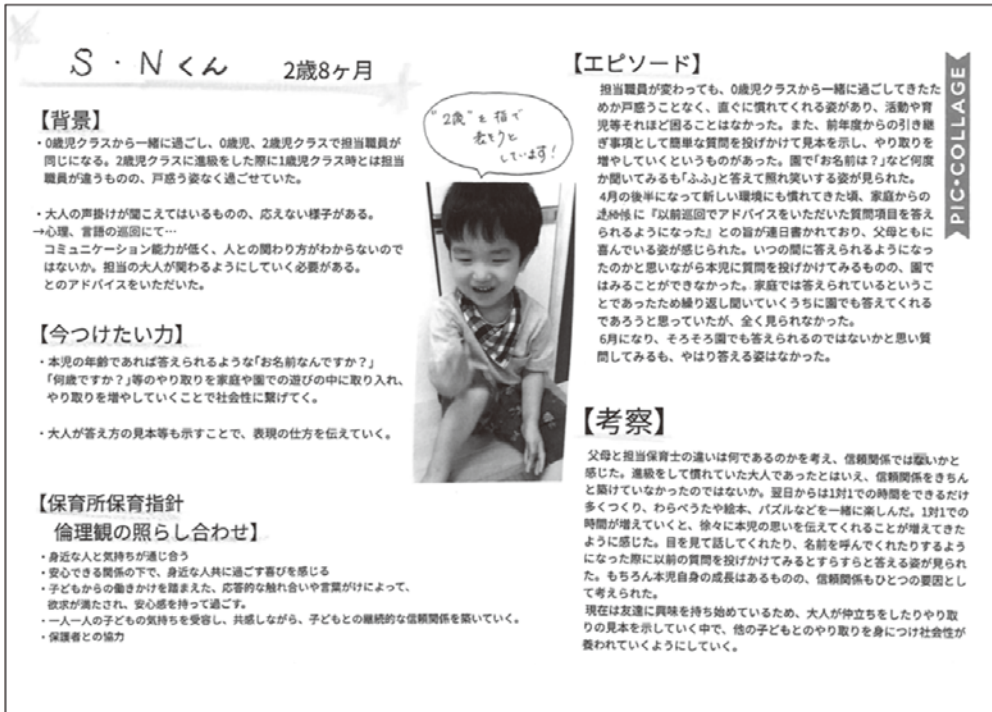 S・Nくん 2歳8ヶ月
【背景】
・0歳児クラスから一緒に過ごし、0歳児、2歳児クラスで担当職員が
同じになる。2歳児クラスに進級をした際に1歳児クラス時とは担当
職員が違うものの、戸惑う姿なく過ごせていた。
・大人の声掛けが聞こえてはいるものの、応えない様子がある。
→心理、言語の巡回にて…
コミュニケーション能力が低く、人との関わり方がわからないので
はないか。担当の大人が関わるようにしていく必要がある。
とのアドバイスをいただいた。
【今つけたい力】
・本児の年齢であれば答えられるような「お名前なんですか?」
「何歳ですか?」等のやり取りを家庭や園での遊びの中に取り入れ、
やり取りを増やしていくことで社会性に繋げてく。
・大人が答え方の見本等も示すことで、表現の仕方を伝えていく。
【保育所保育指針
倫理観の照らし合わせ】
・身近な人と気持ちが通じ合う
・安心できる関係の下で、身近な人共に過ごす喜びを感じる
・子どもからの働きかけを踏まえた、応答的な触れ合いや言葉がけによって、
欲求が満たされ、安心感を持って過ごす。
・一人一人の子どもの気持ちを受容し、共感しながら、子どもとの継続的な信頼関係を築いていく。
・保護者との協力
"2歳"を指で
表そうと
しています!
【エピソード】
担当職員が変わっても、0歳児クラスから一緒に過ごしてきたた
めか戸惑うことなく、直ぐに慣れてくれる姿があり、活動や育
児等それほど困ることはなかった。また、前年度からの引き継
ぎ事項として簡単な質問を投げかけて見本を示し、やり取りを
増やしていくというものがあった。園で「お名前は?」など何度
か聞いてみるも「ふふ」と答えて照れ笑いする姿が見られた。
4月の後半になって新しい環境にも慣れてきた頃、家庭からの
連絡帳に『以前巡回でアドバイスをいただいた質問項目を答え
られるようになった』との旨が連日書かれており、父母ともに
喜んでいる姿が感じられた。いつの間に答えられるようになっ
たのかと思いながら本児に質問を投げかけてみるものの、園で
はみることができなかった。家庭では答えられているというこ
とであったため繰り返し聞いていくうちに園でも答えてくれる
であろうと思っていたが、全く見られなかった。
6月になり、そろそろ園でも答えられるのではないかと思い質
問してみるも、やはり答える姿はなかった。
PIC・COLLAGE
【考察】
父母と担当保育士の違いは何であるのかを考え、信頼関係ではないかと
感じた。進級をして慣れていた大人であったとはいえ、信頼関係をきちん
と築けていなかったのではないか。翌日からは1対1での時間をできるだけ
多くつくり、わらべうたや絵本、パズルなどを一緒に楽しんだ。1対1での
時間が増えていくと、徐々に本児の思いを伝えてくれることが増えてきた
ように感じた。目を見て話してくれたり、名前を呼んでくれたりするよう
になった際に以前の質問を投げかけてみるとすらすらと答える姿が見られ
た。もちろん本児自身の成長はあるものの、信頼関係もひとつの要因とし
て考えられた。
現在は友達に興味を持ち始めているため、大人が仲立ちをしたりやり取
りの見本を示していく中で、他の子どもとのやり取りを身につけ社会性が
養われていくようにしていく。